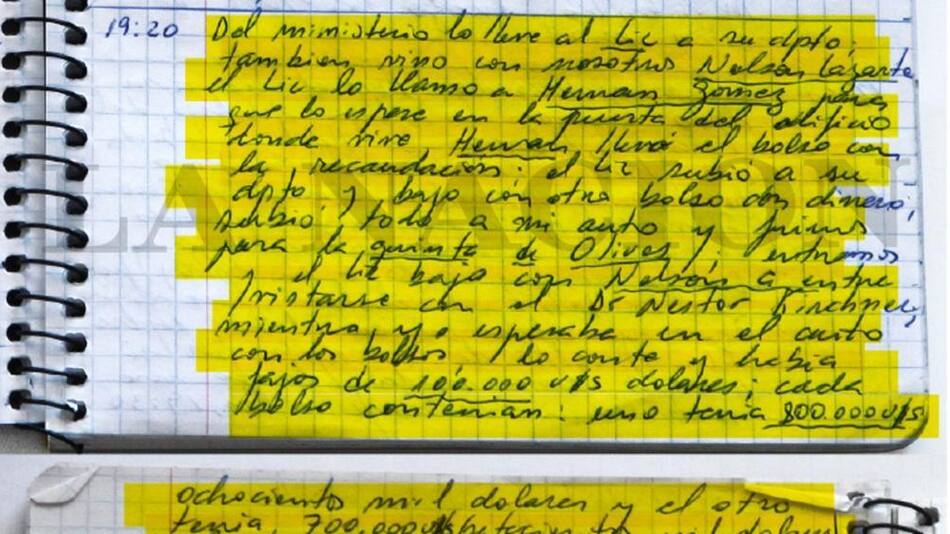 19:20 Del ministerio lo lleve al Lic a su dpto,
tambien vino con nosotros Nelson Lazarte
el Lic lo llamo a Hernan Gomez para
que lo espere en la puerta del edificio
donde vive Hernan llevó el bolso con
la recaudación: el Lic subio a su
dpto y bajo con otro bolso con dinero;
subio todo a mi auto y fuimos
para la quinta de Olivos; entramos
y el Lic bajo con Nelson a entre
vistarse con el Dr Nestor Kirchner,
mientra, yo esperaba en el auto
con los bolsos lo conte y habia
fajos de 100.000 u$s dolares; cada
bolso contenian: uno tenia 800.000 u$s
ochocientos mil dolares y el otro
tenia, 700.000 u$s setecientos mil dolares
LA NACION